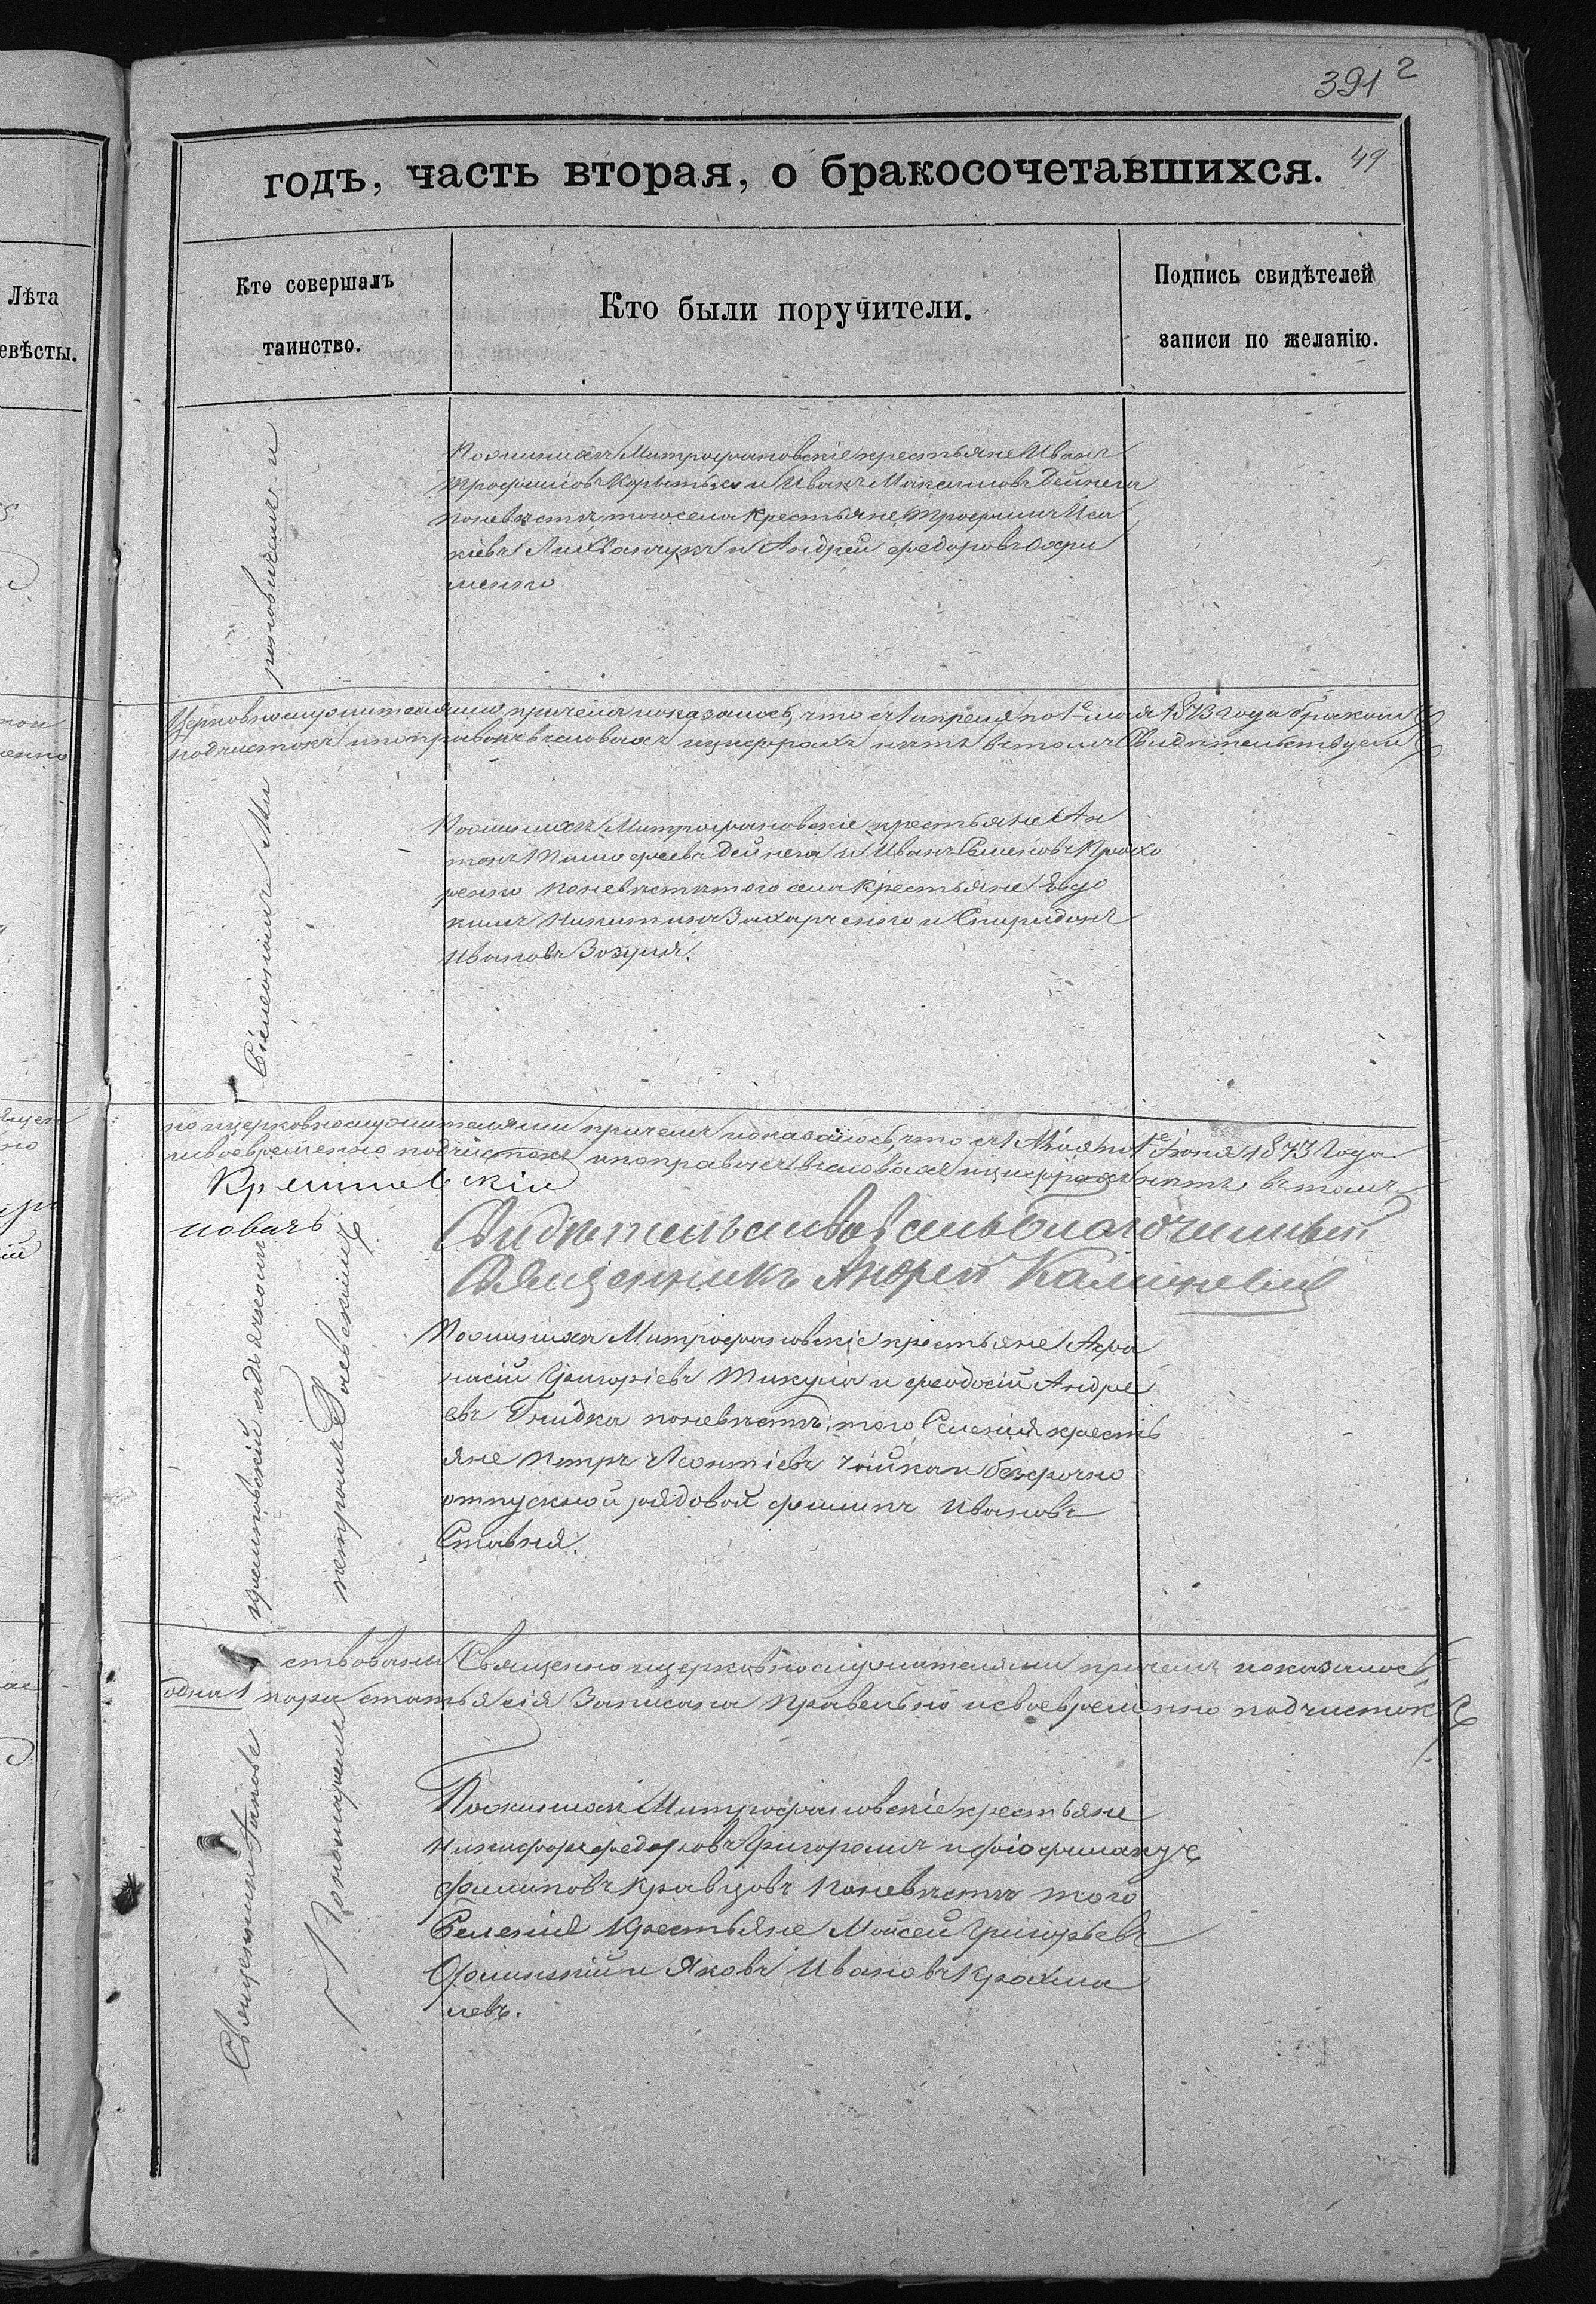 391 2
49
годъ, часть вторая, о бракосочетавшихся.
Лѣта
евѣсты.
Кто совершалъ
таинство.
Кто были поручители.
Подпись свидѣтелей
записи по желанію.
По женихѣ Митрофановскіе крестьяне Иванъ
Трофимовъ и Иванъ Максимовъ Дейнега
по невѣстѣ того села крестьяне Трофимъ Иса
кіевъ и Андрей Федоровъ Охри
менко
Церковнослужителями причемъ показалось, что съ 1 апреля по 1е мая 1873 года браком
подчистокъ и поправокъ в словахъ и цифрахъ нѣтъ в томъ Свидѣтельствуем
По женихѣ Митрофановскіе крестьяне Ан
тонъ Тимофеевъ Дейнега и Иванъ Семеновъ Прохо
ренко по невѣстѣ того села Крестьяне Евдо
кимъ Никитинъ Захарченко и Спиридонъ
Ивановъ Зозуля.
но церковнослужителями причемъ показалось, что съ 1 Мая по 1е Іюня 1873 Года
и своевременно подчистокъ и поправокъ в словахъ и цифрахъ нѣтъ в томъ
Свидѣтельствовалъ Благочинный
Священникъ Андрей
По женихѣ Митрофановскіе крестьяне Афа
насій Григоріевъ Шикула и Феодосій Андре
евъ Гнидка по невѣстѣ: того Селенія кресть
яне Петръ Леонтіевъ Чайка и безсрочно
отпускной рядовой Филипъ Ивановъ
Ставня.
ствовали Священно и церковнослужителями причемъ показалось
одна 1 пара статья сія Записана правельно и своевременно подчистокъ
По женихѣ Митрофановскіе крестьяне
Никифоръ Федоровъ и
Филиповъ Кравцовъ по невѣстѣ того
Селенія Крестьяне Мойсей Григорьевъ
и Яковъ Ивановъ Крахма
левъ.
Священникъ
Пономарем